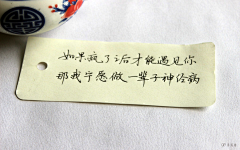 如果疯了之后才能遇见你
那我宁愿做一辈子神经病